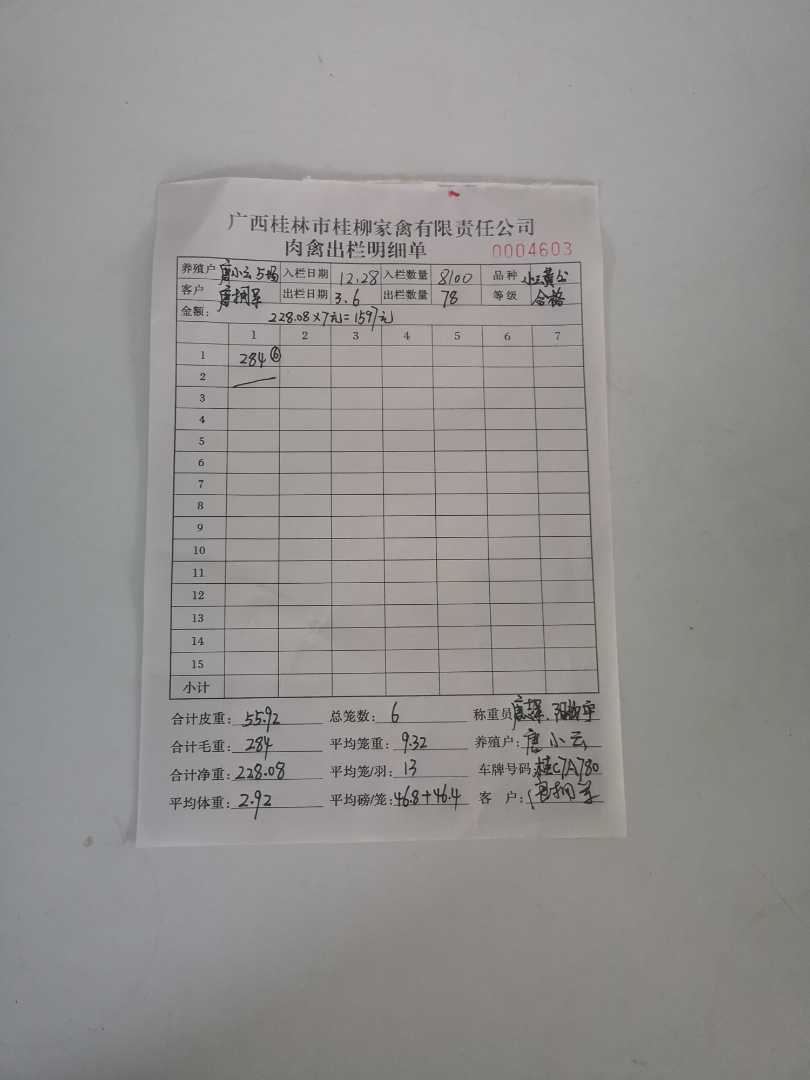 广西桂林市桂柳家禽有限责任公司
肉禽出栏明细单 0004603
养殖户 唐小云5场 入栏日期 12.28 入栏数量 8100 品种 小三黄公
客户 唐拥军 出栏日期 3.6 出栏数量 78 等级 合格
金额: 228.08×7元=1597元
1 2 3 4 5 6 7
1 284⑥
2
3
4
5
6
7
8
9
10
11
12
13
14
15
小计
合计皮重: 55.92 总笼数: 6 称重员
合计毛重: 284 平均笼重: 9.32 养殖户: 唐小云
合计净重: 228.08 平均笼/羽: 13 车牌号码: 桂C7A780
平均体重: 2.92 平均磅/笼: 46.8+46.4 客户: